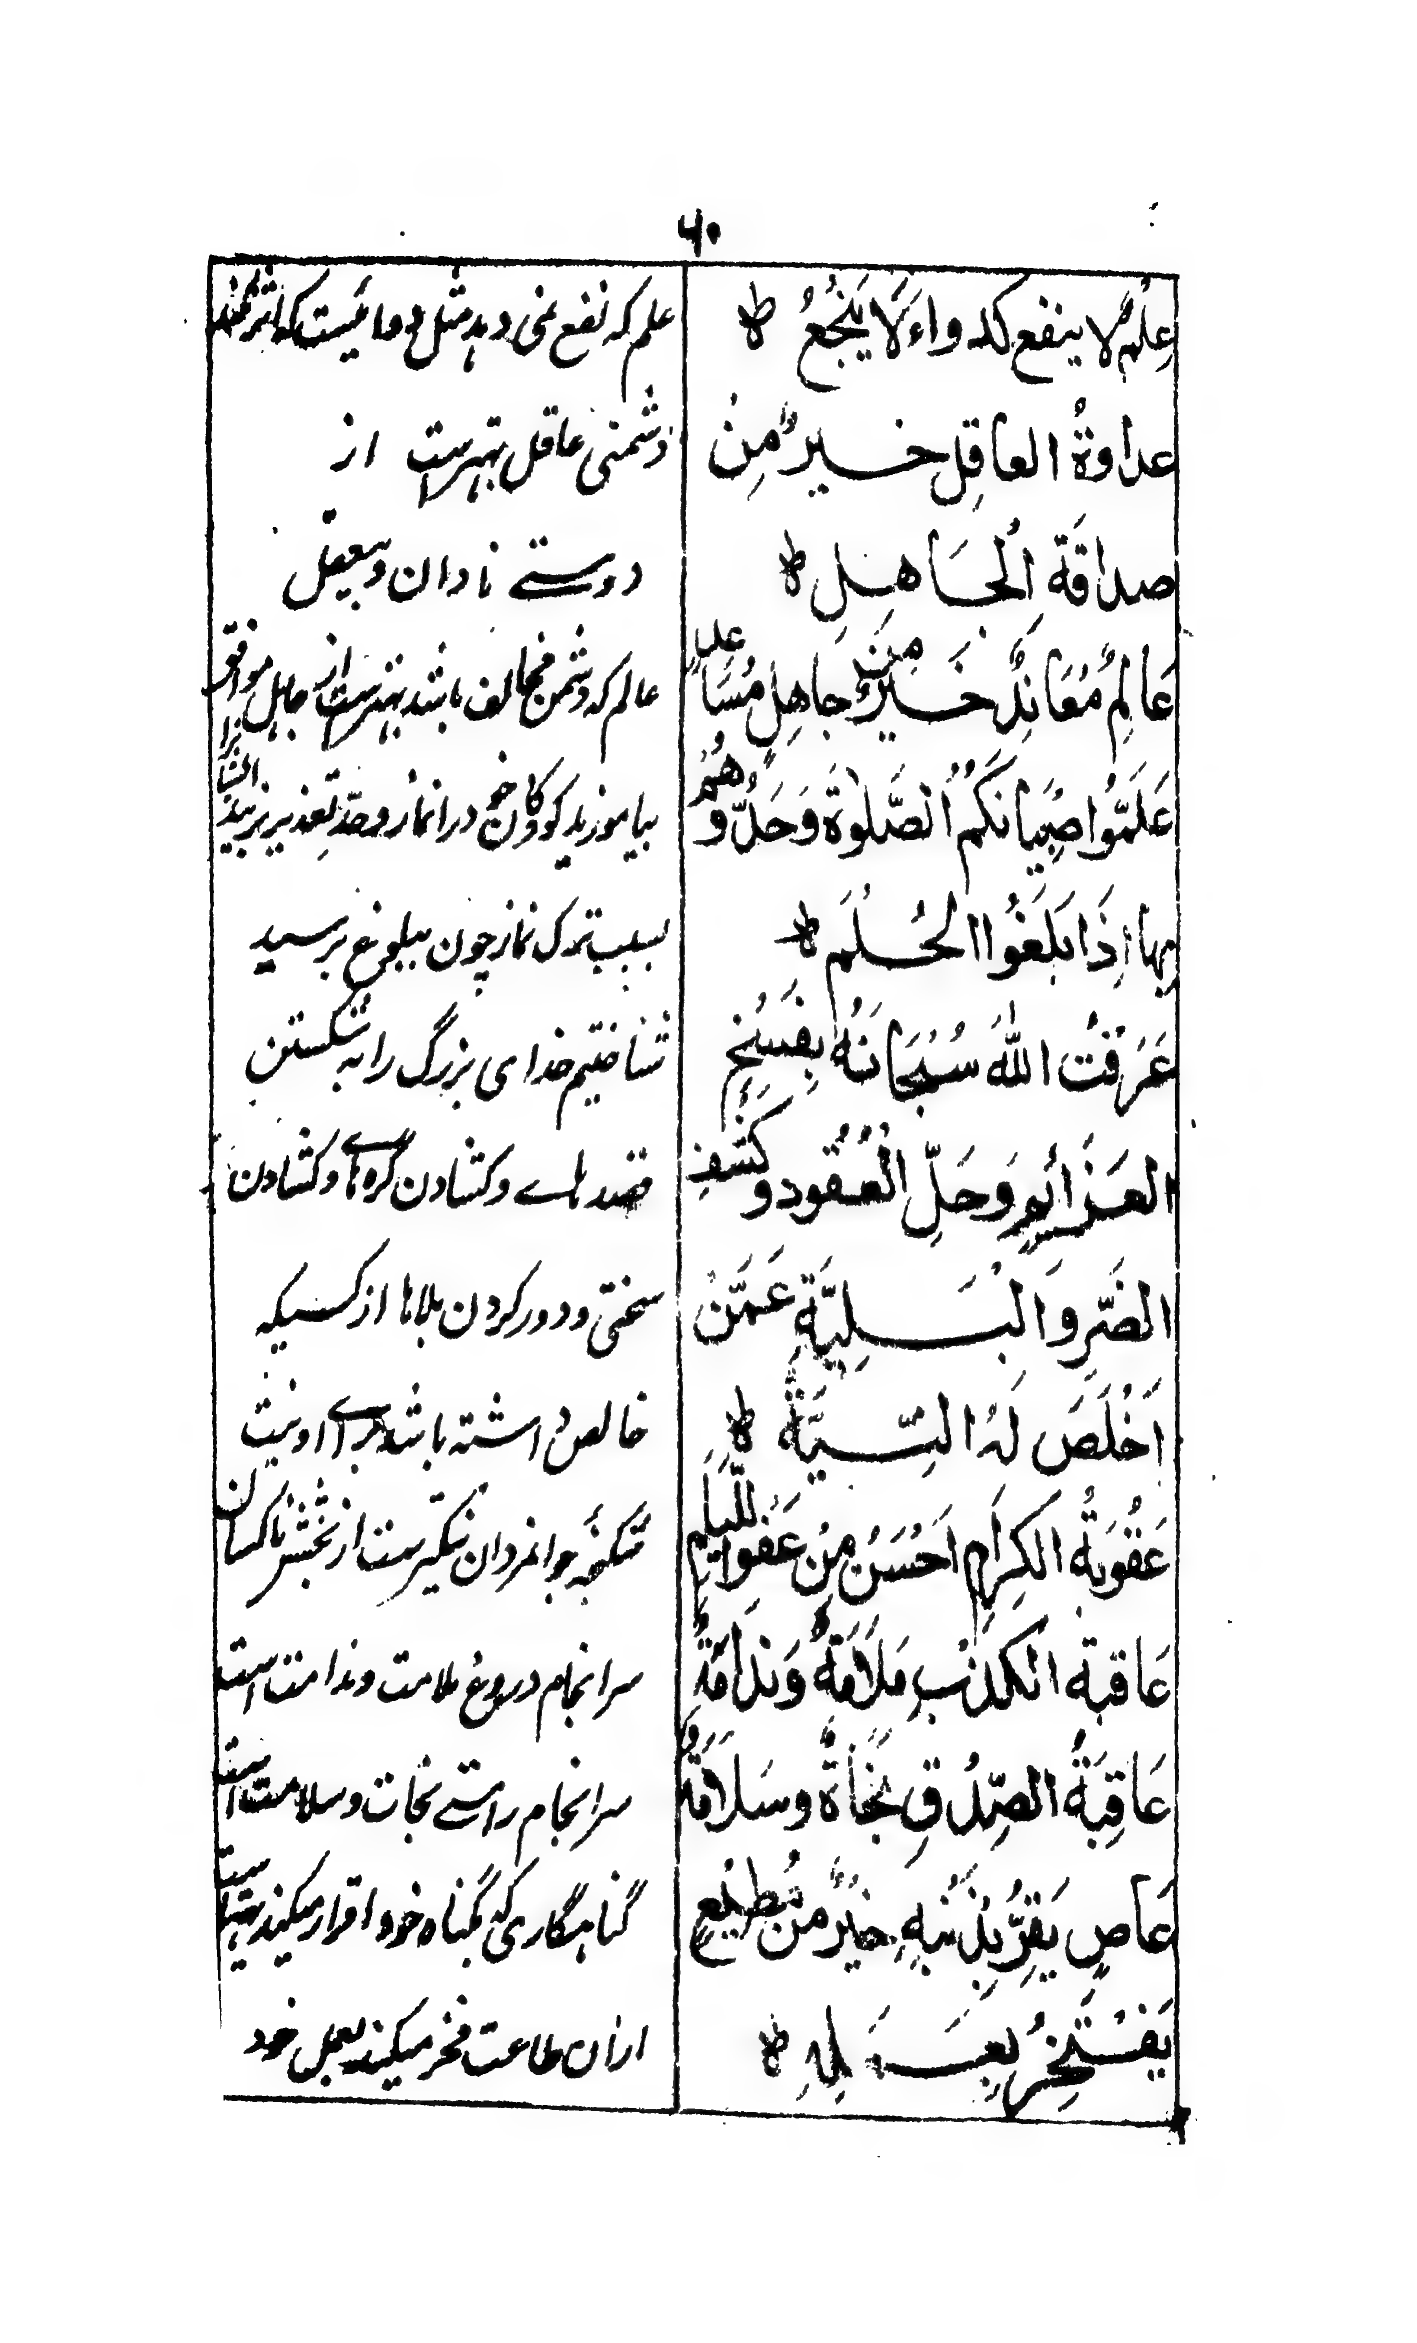 ۶۰
عِلْمٌ لا ينفع كدواء لَا يَنْجَعُ ط
علم که نفع نمی دهد مثل دوائیست که اثر نکند
عداوةُ العاقِلِ خيرٌ مِنْ
دشمنی عاقل بهترست از
صداقَةِ الْجَاهِلِ ط
دوستے نادان و بیعقل
عَالِمٌ مُعَانِدٌ خَيْرٌ مِنْ جاهِلٍ مُسَاعِدٍ
عالم که دشمن مخالف باشد بهترست از جاہل موافق
عَلِّمُوا صِبْيانَكُمُ الصَّلٰوةَ وَحَدُّوهُمْ
بیاموزید کودکان خود را نماز و حد تعذیر بزنید
بِهَا إِذَا بَلَغُوا الْحُلُمَ ط
بسبب ترک نماز چون ببلوغ برسید
عَرَفْتُ اللّٰهَ سُبْحَانَهُ بِفَسْخِ
شناختیم خدای بزرگ را به شکستن
العَزَائِمِ وَحَلِّ الْعُقُودِ وَكَشْفِ
قصدہاے و کشادن گرہ ہاے و کشادن
الضُّرِّ وَالْبَلِيَّةِ عَمَّنْ
سختی و دور کردن بلاہا از کسیکہ
اَخْلَصَ لَهُ النِّيَّةَ ط
خالص داشتہ باشد براے او نیت
عَقُوبَةُ الكِرَامِ اَحْسَنُ مِنْ عَفْوِ اللِّيَامِ
شکنجہ جوانمردان نیکترست از بخشش ناکسان
عَاقِبَةُ الْكِذْبِ مَلَامَةٌ وَنَدَامَةٌ
سرانجام دروغ ملامت و ندامت است
عَاقِبَةُ الصِّدْقِ نَجَاةٌ وسَلَامَةٌ
سرانجام راستے نجات و سلامت است
عَاصٍ يَقِرُّ بِذَنْبِهِ خَيْرٌ مِنْ مُطِيْعٍ
گناہگاری کہ بگناہ خود اقرار میکند بہتر است
يَفْتَخِرُ بِعَمَلِهِ ط
ازان طاعت فخر میکند بعمل خود